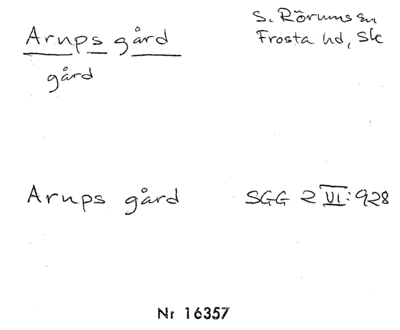 Arups gård
gård
S. Rörums sn
Frosta hd, Sk
Arups gård
SGG 2 VI:928
Nr 16357